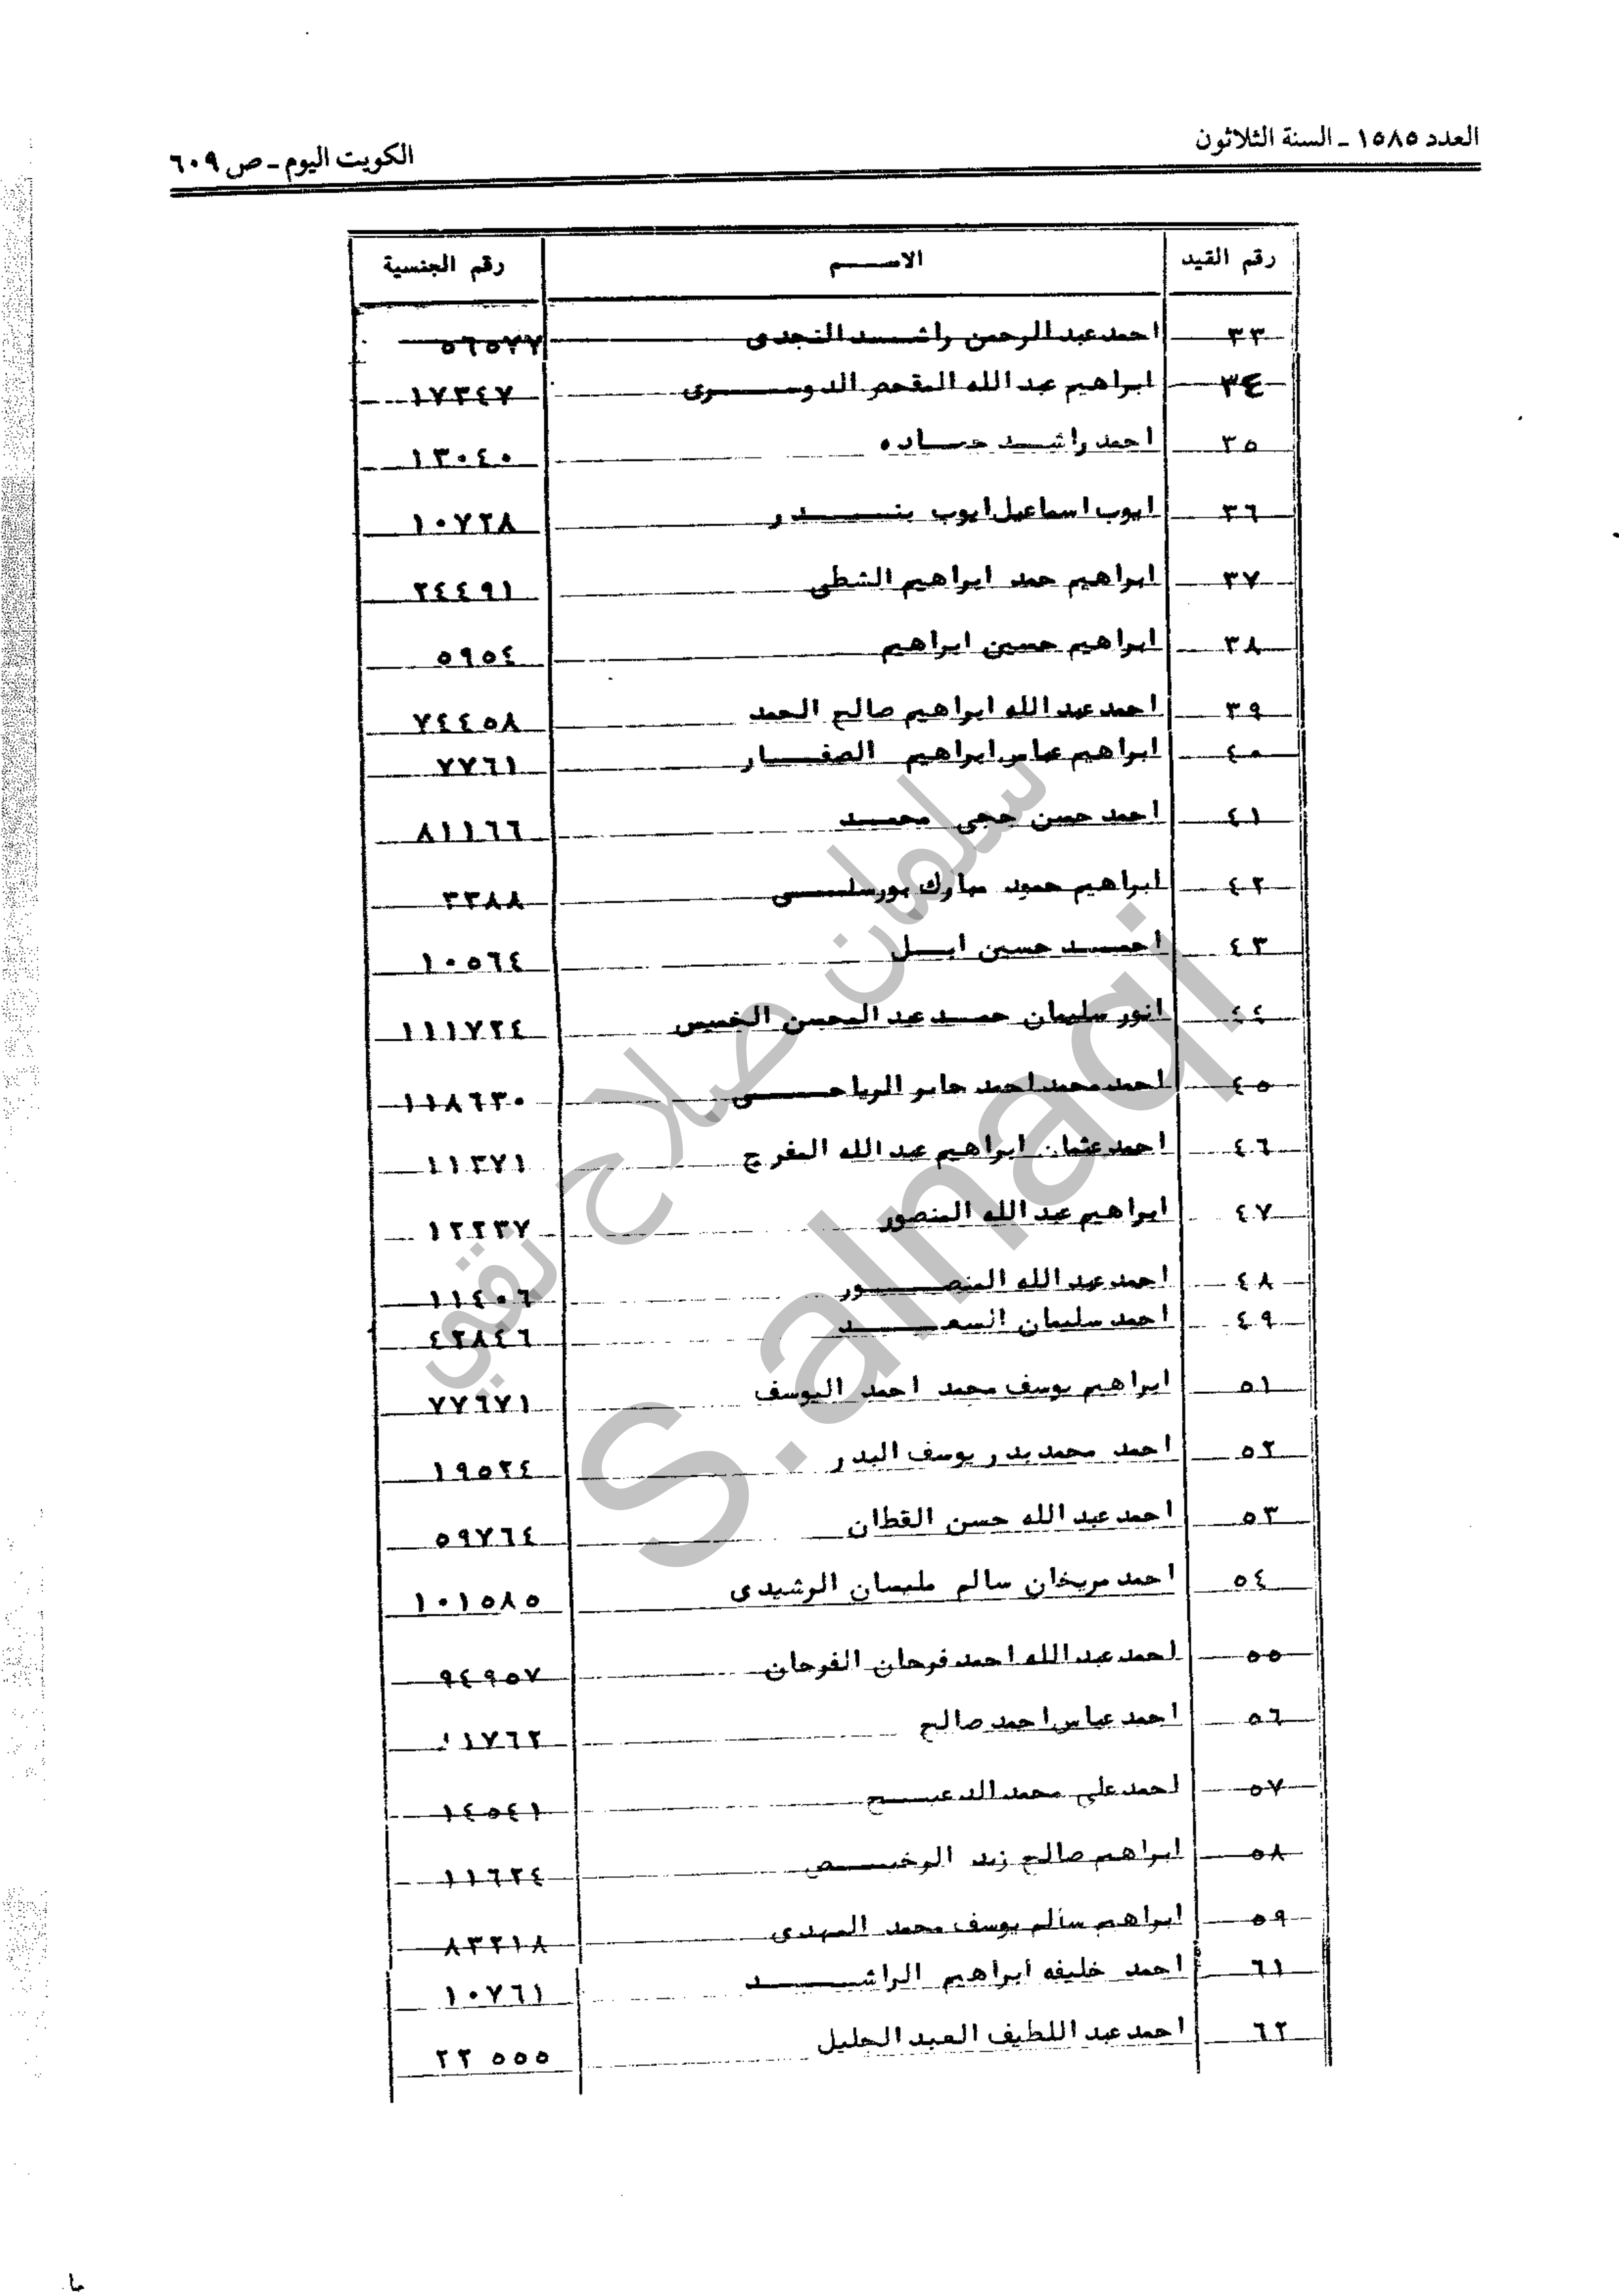 العدد ١٥٨٥ ـ السنة الثلاثون
الكويت اليوم ـ ص ٦٠٩
رقم القيد الاسم رقم الجنسية
٣٣ احمد عبد الرحمن راشد النجدى ٥٦٥٧٧
٣٤ ابراهيم عبد الله المقحص الدوسرى ١٧٣٤٧
٣٥ احمد راشد حماده ١٣٠٤٠
٣٦ ايوب اسماعيل ايوب بندر ١٠٧٢٨
٣٧ ابراهيم حمد ابراهيم الشطى ٢٤٤٩١
٣٨ ابراهيم حسين ابراهيم ٥٩٥٤
٣٩ احمد عبد الله ابراهيم صالح الحمد ٧٤٤٥٨
٤٠ ابراهيم عباس ابراهيم الصفار ٧٧٦١
٤١ احمد حسن حجى محمد ٨١١٦٦
٤٢ ابراهيم حمود مبارك بورسلى ٣٣٨٨
٤٣ احمد حسين ابل ١٠٥٦٤
٤٤ انور سليمان حمد عبد المحسن الخميس ١١١٧٢٤
٤٥ احمد محمد احمد جابر الرباحى ١١٨٦٣٠
٤٦ احمد عثمان ابراهيم عبد الله المفرج ١١٣٧١
٤٧ ابراهيم عبد الله المنصور ١٢٢٣٧
٤٨ احمد عبد الله المنصور ١١٤٠٦
٤٩ احمد سليمان السعد ٤٢٨٤٦
٥١ ابراهيم يوسف محمد احمد اليوسف ٧٧٦٧١
٥٢ احمد محمد بدر يوسف البدر ١٩٥٢٤
٥٣ احمد عبد الله حسن القطان ٥٩٧٦٤
٥٤ احمد مريخان سالم مليسان الرشيدى ١٠١٥٨٥
٥٥ احمد عبد الله احمد فرحان الفرحان ٩٤٩٥٧
٥٦ احمد عباس احمد صالح ١١٧٦٢
٥٧ احمد على محمد الدعيج ١٤٥٤١
٥٨ ابراهيم صالح زيد الرخيص ١١٦٢٤
٥٩ ابراهيم سالم يوسف محمد المهدى ٨٣٢١٨
٦١ احمد خليفه ابراهيم الراشد ١٠٧٦١
٦٢ احمد عبد اللطيف العبد الجليل ٢٢٥٥٥
سلمان صلاح نقي
S.alnaqi